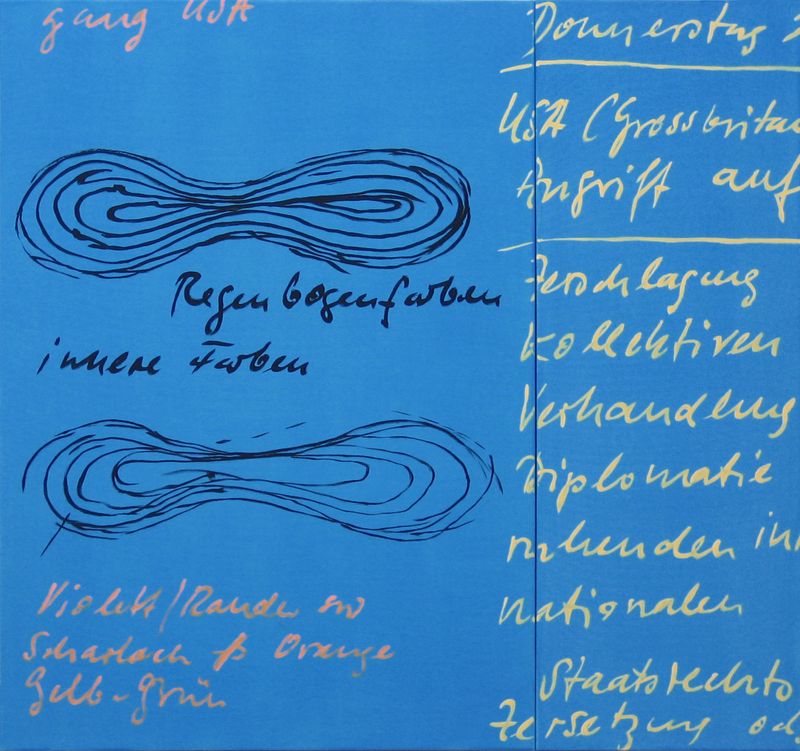 gang USA
Regenbogenfarben
innere Farben
Violett/Rander
Scharlach Orange
Gelb-Grün
Donnerstag
USA (Grossbritan
Angriff auf
Zerschlagung
Kollektiven
Verhandlung
Diplomatie
ruhenden in
nationalen
Staatsrechts
Zersetzung od